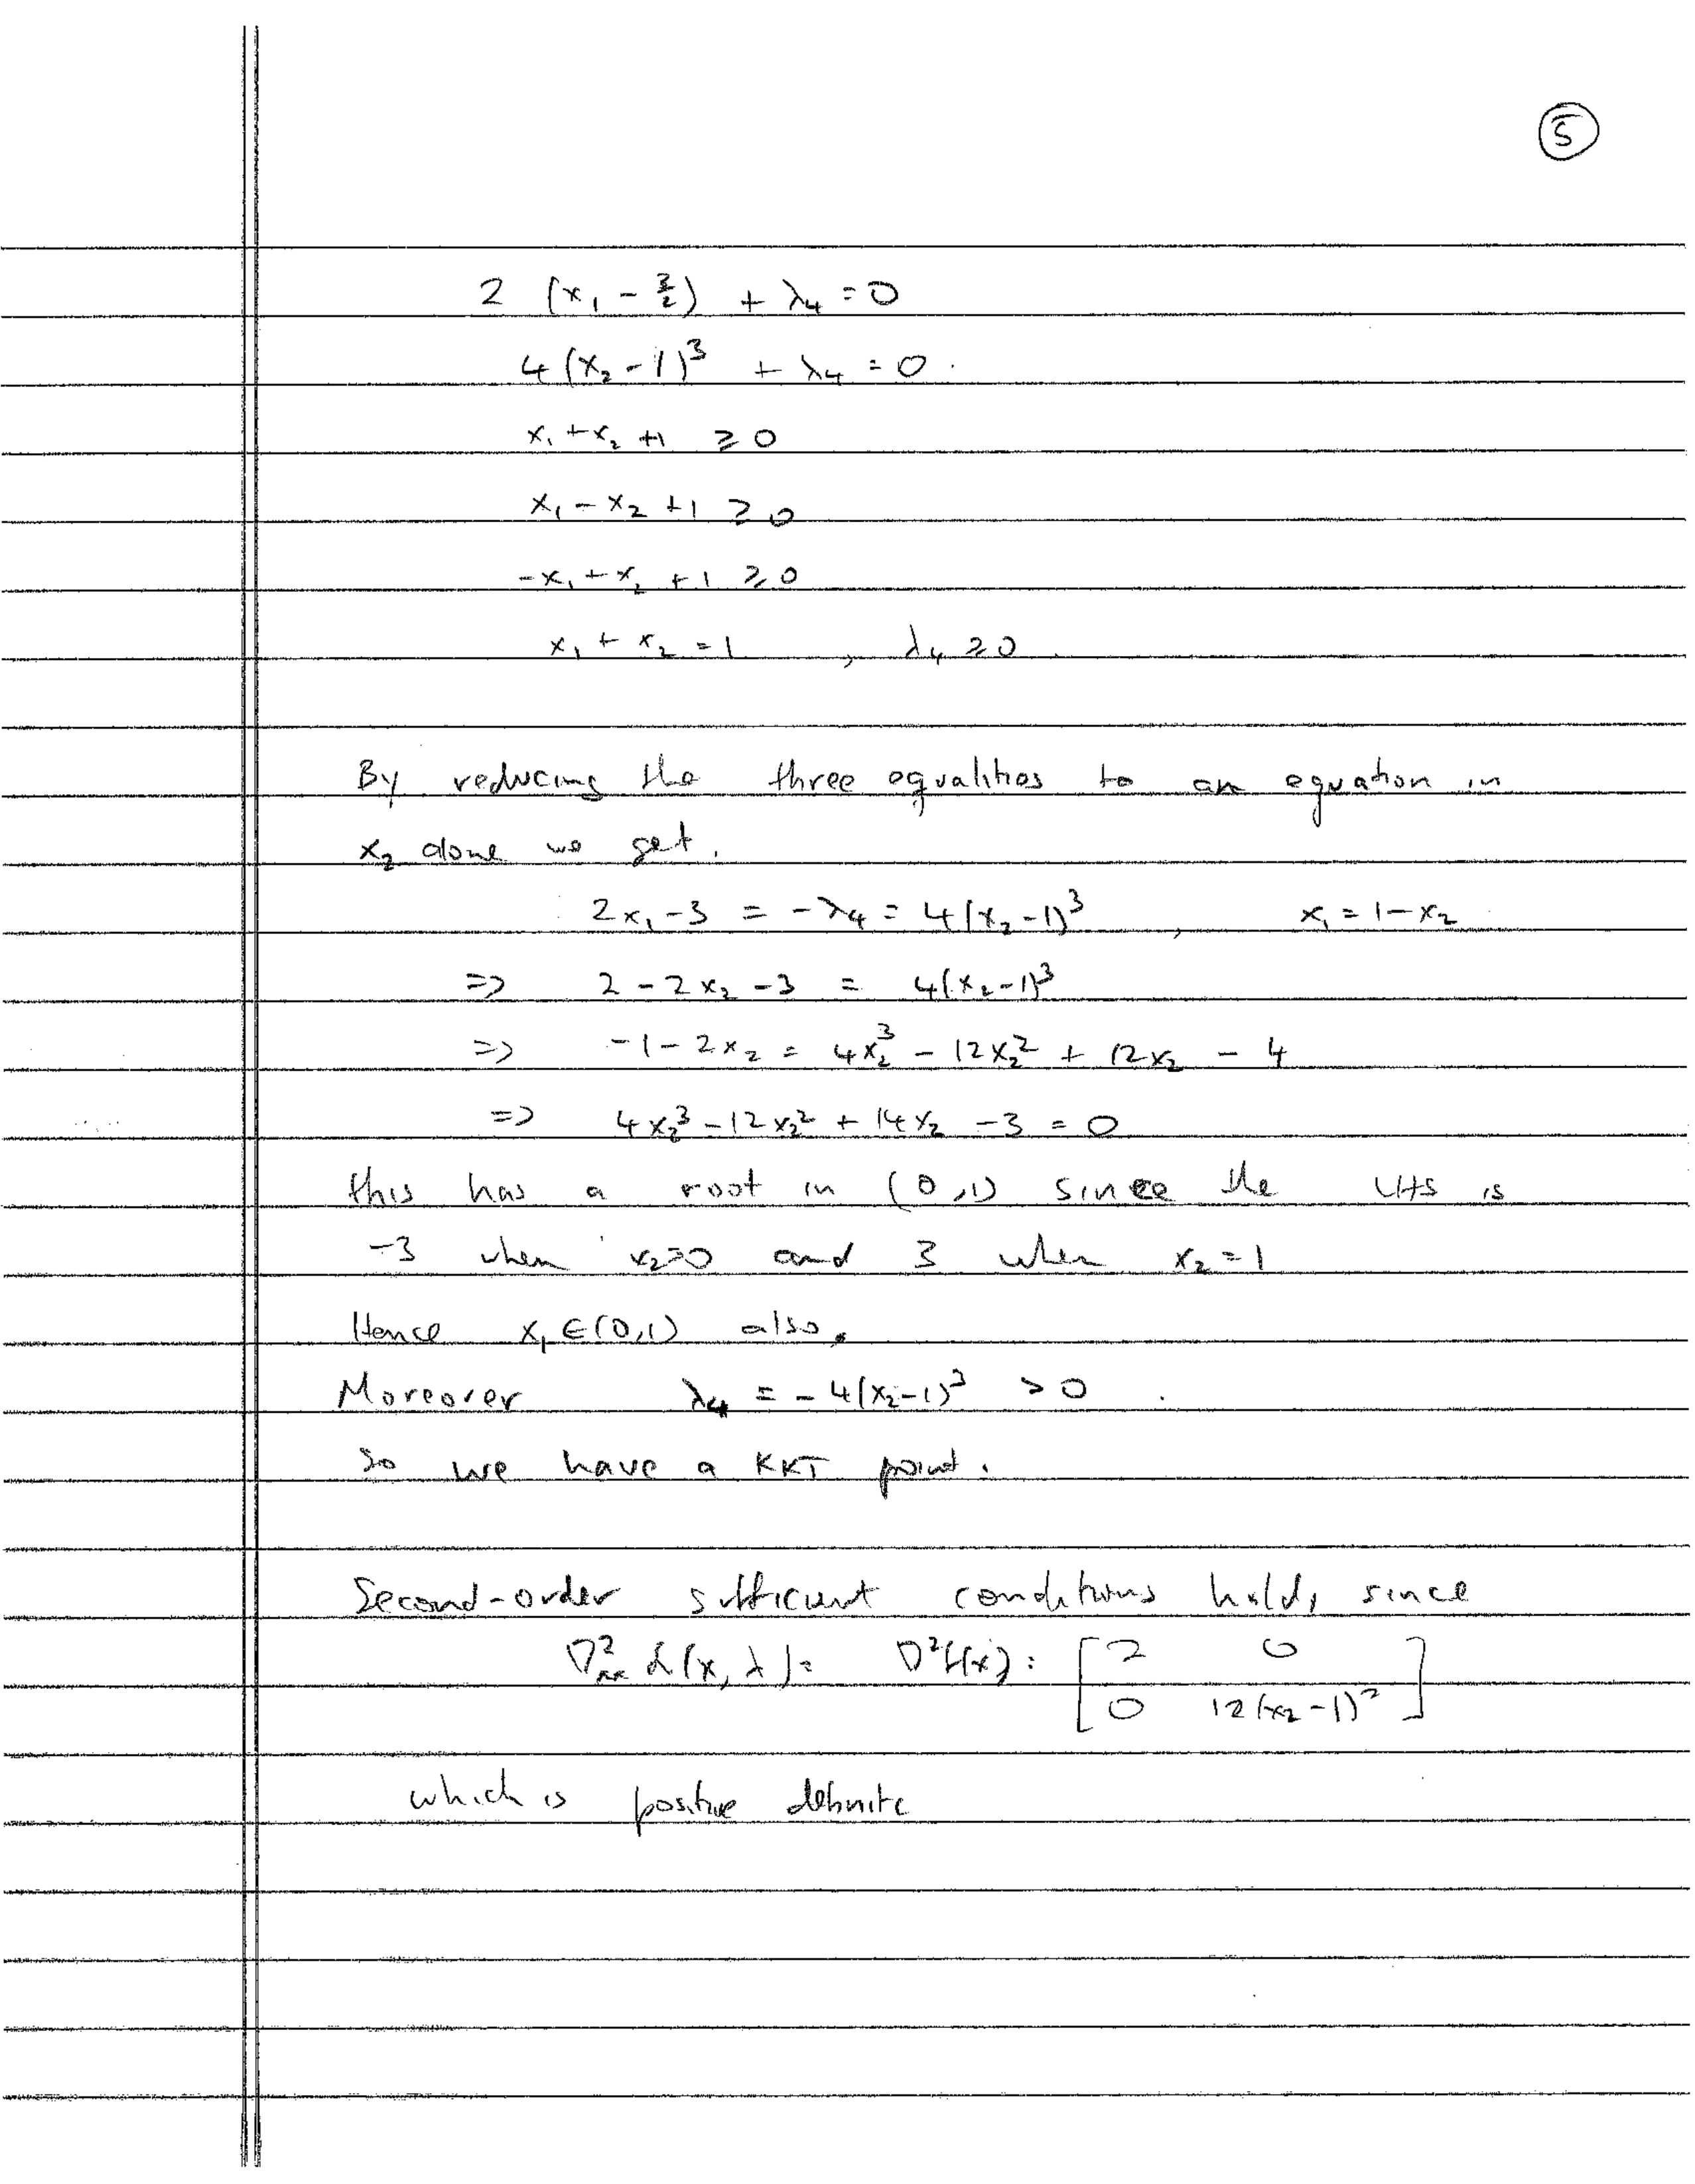 5
2 (x₁ - 3/2) + λ₄ = 0
4(x₂ - 1)³ + λ₄ = 0.
x₁ + x₂ + 1 ≥ 0
x₁ - x₂ + 1 ≥ 0
-x₁ + x₂ + 1 ≥ 0
x₁ + x₂ = 1 , λ₄ ≥ 0.
By reducing the three equalities to an equation in
x₂ alone we get.
2x₁ - 3 = -λ₄ = 4(x₂-1)³ , x₁ = 1 - x₂
=> 2 - 2x₂ - 3 = 4(x₂-1)³
=> -1 - 2x₂ = 4x₂³ - 12x₂² + 12x₂ - 4
=> 4x₂³ - 12x₂² + 14x₂ - 3 = 0
this has a root in (0,1) since the LHS is
-3 when x₂=0 and 3 when x₂=1
Hence x₁ ∈ (0,1) also.
Moreover λ₄ = -4(x₂-1)³ > 0.
So we have a KKT point.
Second-order sufficient conditions hold, since
∇²ₓₓ L(x, λ) = ∇²f(x) = [ 2 0
0 12(x₂-1)² ]
which is positive definite